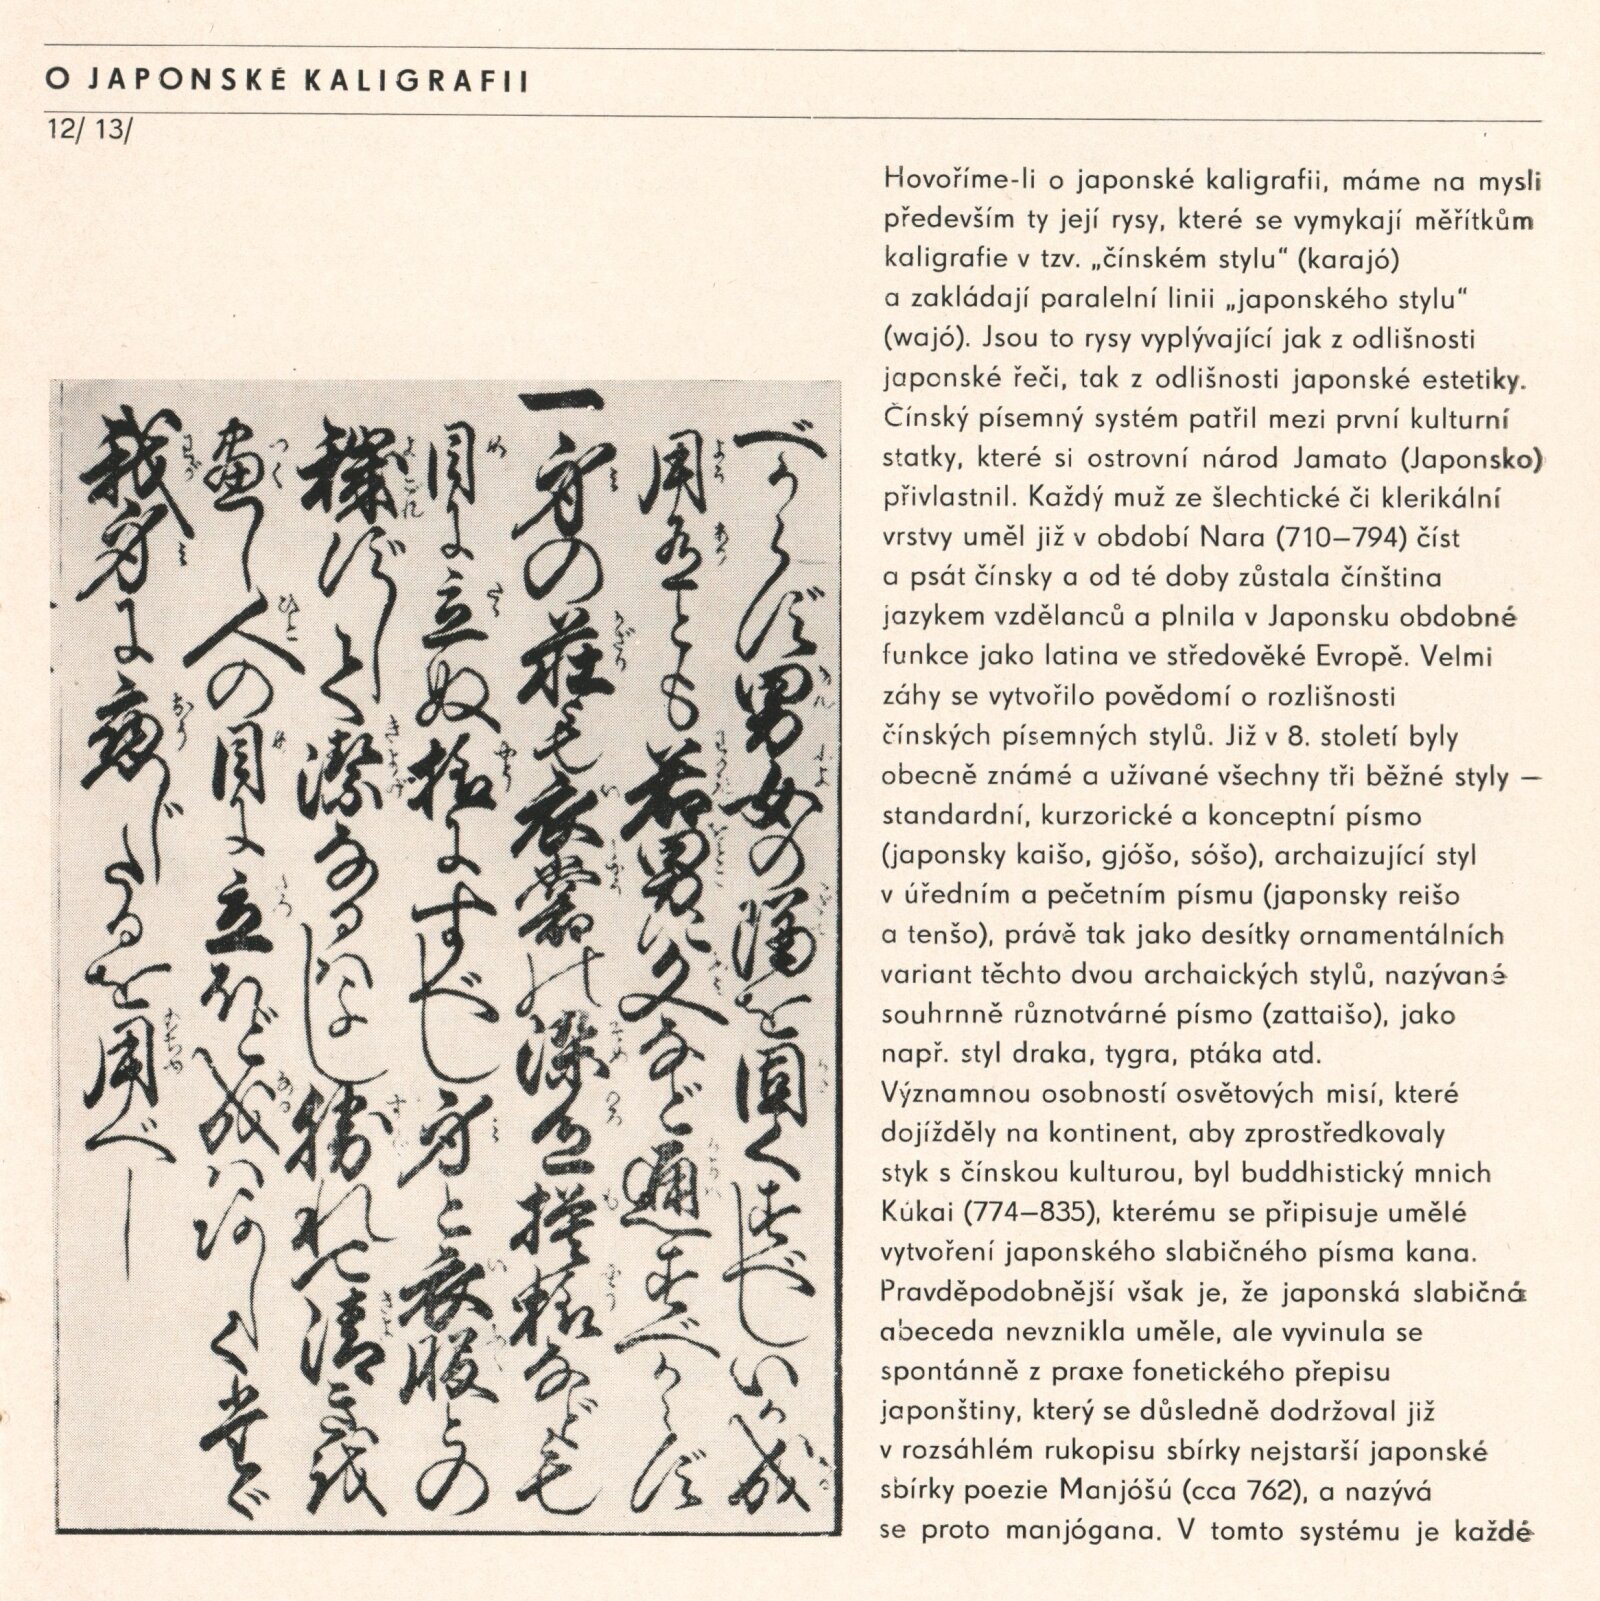 O JAPONSKÉ KALIGRAFII
12/ 13/
べからず男女の隔を固くすべしいか成
用有とも若男に文など通すべからず
一身の荘も衣裳の染色模様なども
目に立ぬ様にすべし身と衣服との
穢ずして潔なるはよし勝れて清
盡し人の目に立ほど成はあしく
我身に應じたるを用べし
Hovoříme-li o japonské kaligrafii, máme na mysli
především ty její rysy, které se vymykají měřítkům
kaligrafie v tzv. „čínském stylu“ (karajó)
a zakládají paralelní linii „japonského stylu“
(wajó). Jsou to rysy vyplývající jak z odlišnosti
japonské řeči, tak z odlišnosti japonské estetiky.
Čínský písemný systém patřil mezi první kulturní
statky, které si ostrovní národ Jamato (Japonsko)
přivlastnil. Každý muž ze šlechtické či klerikální
vrstvy uměl již v období Nara (710–794) číst
a psát čínsky a od té doby zůstala čínština
jazykem vzdělanců a plnila v Japonsku obdobné
funkce jako latina ve středověké Evropě. Velmi
záhy se vytvořilo povědomí o rozlišnosti
čínských písemných stylů. Již v 8. století byly
obecně známé a užívané všechny tři běžné styly –
standardní, kurzorické a konceptní písmo
(japonsky kaišo, gjóšo, sóšo), archaizující styl
v úředním a pečetním písmu (japonsky reišo
a tenšo), právě tak jako desítky ornamentálních
variant těchto dvou archaických stylů, nazývané
souhrnně různotvárné písmo (zattaišo), jako
např. styl draka, tygra, ptáka atd.
Významnou osobností osvětových misí, které
dojížděly na kontinent, aby zprostředkovaly
styk s čínskou kulturou, byl buddhistický mnich
Kúkai (774–835), kterému se připisuje umělé
vytvoření japonského slabičného písma kana.
Pravděpodobnější však je, že japonská slabičná
abeceda nevznikla uměle, ale vyvinula se
spontánně z praxe fonetického přepisu
japonštiny, který se důsledně dodržoval již
v rozsáhlém rukopisu sbírky nejstarší japonské
sbírky poezie Manjóšú (cca 762), a nazývá
se proto manjógana. V tomto systému je každé